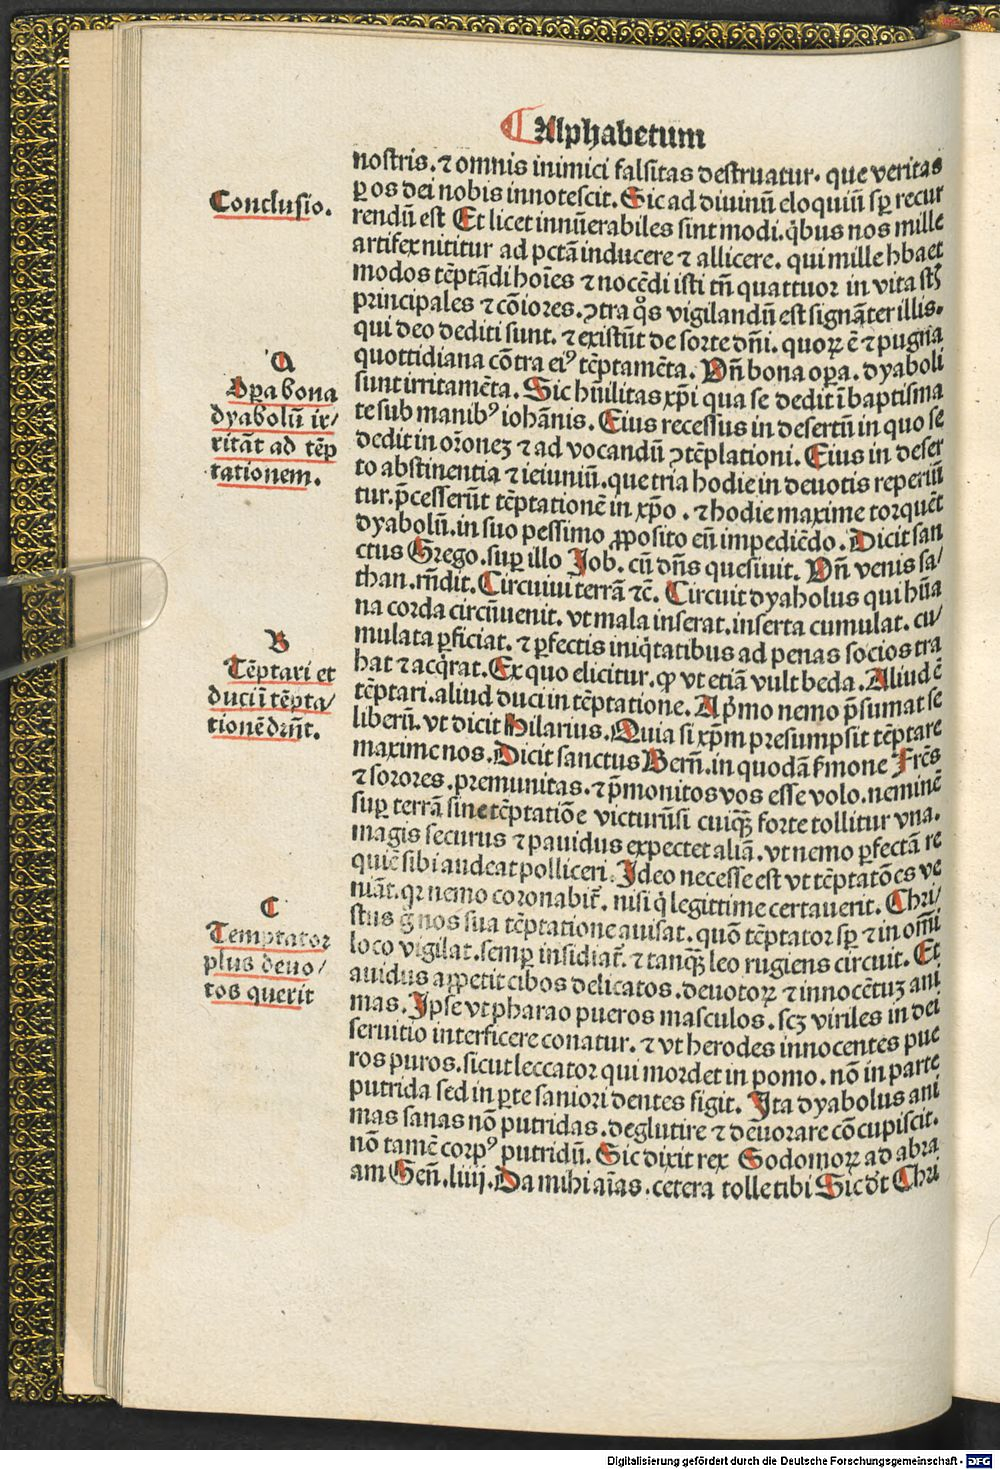 Alphabetum
nostris. ⁊ omnis inimici falsitas destruatur. que veritas
ꝑ os dei nobis innotescit. Sic ad diuinū eloquiū sꝑ recur
rendū est Et licet innūerabiles sint modi. q̇bus nos mille
artifex nititur ad pctā inducere ⁊ allicere. qui mille hbaet
modos tēptādi hoīes ⁊ nocēdi isti tn̄ quattuor in vita
principales ⁊ cōiores. ꝯtra qͦs vigilandū est signāter illis.
qui deo dediti sunt. ⁊ existūt de sorte dn̄i. quoꝝ ē ⁊ pugna
quottidiana cōtra eiꝰ tēptamēta. Vn̄ bona oꝑa. dyaboli
sunt irritamēta. Sic hūilitas xp̄i qua se dedit ī baptisma
te sub manibꝰ iohānis. Eius recessus in desertū in quo se
dedit in or̄onez ⁊ ad vocandū ꝯtēplationi. Eius in deser
to abstinentia ⁊ ieiuniū. que tria hodie in deuotis reperiū
tur. p̄cesserūt tēptationē in xp̄o . ⁊ hodie maxime torquēt
dyabolū. in suo pessimo ꝓposito eū impediēdo. Dicit san
ctus Grego. suꝑ illo Job. cū dn̄s quesiuit. Vn̄ venis sa/
than. rn̄dit. Circuiui terrā ⁊c̄. Circuit dyabolus qui hūa
na corda circūuenit. vt mala inserat. inserta cumulat. cu/
mulata ꝑficiat. ⁊ ꝑfectis iniq̇tatibus ad penas socios tra
hat ⁊ acq̇rat. Ex quo elicitur. ꝙ vt etiā vult beda. Aliud ē
tēptari. aliud duci in tēptatione. A pͥmo nemo p̄sumat se
liberū. vt dicit Hilarius. Quia si xp̄m presumpsit tēptare
maxime nos. Dicit sanctus Bern̄. in quodā s̄mone Fres̄
⁊ sorores. premunitas. ⁊ p̄monitos vos esse volo. neminē
suꝑ terrā sine tēptatiōe victurū si cuiqꝫ forte tollitur vna.
magis securus ⁊ pauidus expectet aliā. vt nemo ꝑfectā re
quiē sibi audeat polliceri. Ideo necesse est vt tēptatōes ve
niāt. qꝛ nemo coronabit᷑. nisi q̇ legittime certauerit. Chri/
stus g̊ nos sua tēptatione auisat. quō tēptator sꝑ ⁊ in om̄i
loco vigilat. semꝑ insidiat᷑. ⁊ tanqꝫ leo rugiens circuit. Et
auidus appetit cibos delicatos. deuotoꝝ ⁊ innocētuꝫ ani
mas. Ipse vt pharao pueros masculos. scꝫ viriles in dei
seruitio interficere conatur. ⁊ vt herodes innocentes pue
ros puros. sicut leccator qui mordet in pomo. nō in parte
putrida sed in ꝑte saniori dentes figit. Ita dyabolus ani
mas sanas nō putridas. deglutire ⁊ deuorare cōcupiscit.
nō tamē corpꝰ putridū. Sic dixit rex Sodomoꝝ ad abra
am Gen̄. liiij. Da mihi aīas. cetera tolle tibi Sic dr̄t Chri
Conclusio.
A
Oꝑa bona
dyabolū ir/
ritāt ad tēp
tationem.
B
Tēptari et
duci ī tēpta/
tionē drn̄t.
C
Temptator
plus deuo/
tos querit
Digitalisierung gefördert durch die Deutsche Forschungsgemeinschaft - DFG